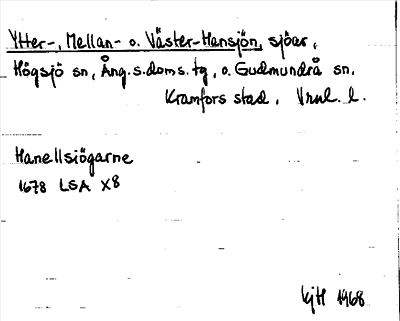 Ytter-, Mellan- o. Väster-Hansjön, sjöar,
Högsjö sn, Ång. s. doms. tg, o. Gudmundrå sn.
Kramfors stad. Vnl. l.
Hanellsiögarne
1678 LSA X8
KjH 1968